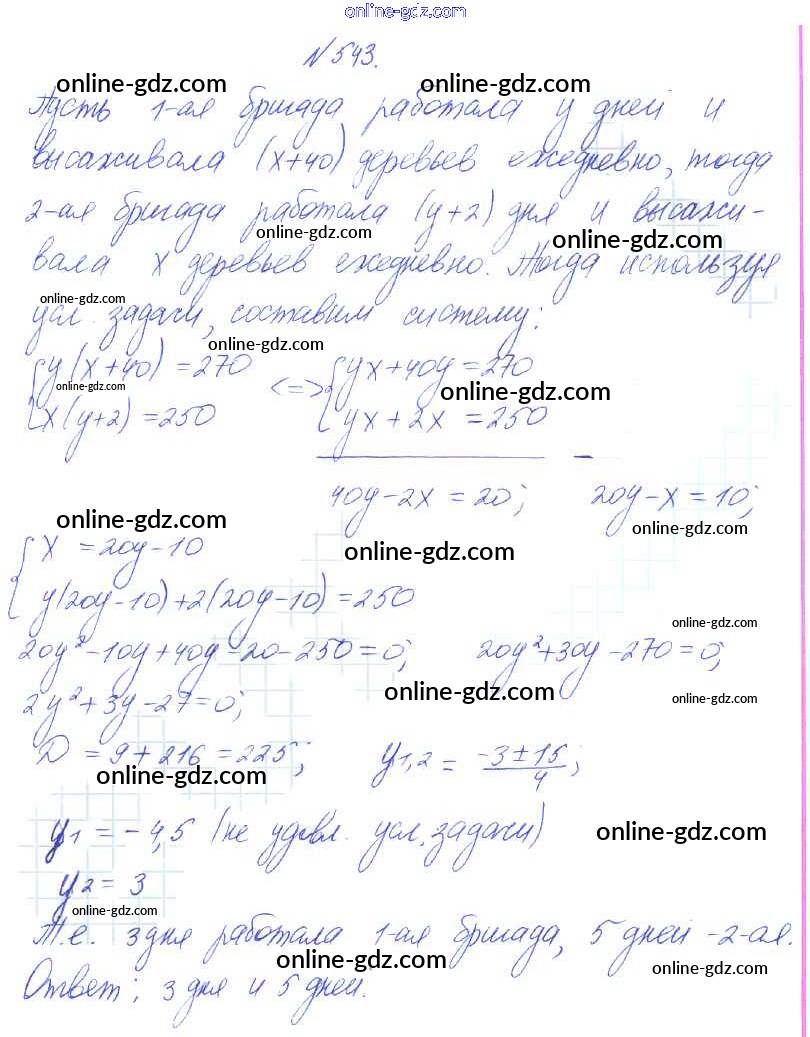 online-gdz.com
№ 543.
online-gdz.com online-gdz.com
Пусть 1-ая бригада работала y дней и
высаживала (x+40) деревьев ежедневно, тогда
2-ая бригада работала (y+2) дня и высажи-
online-gdz.com online-gdz.com
вала x деревьев ежедневно. Тогда используя
online-gdz.com
усл. задачи, составим систему:
online-gdz.com
{ y(x+40) = 270 <=> { yx+40y = 270
online-gdz.com online-gdz.com
x(y+2) = 250 yx + 2x = 250
–
40y-2x = 20; 20y-x = 10;
online-gdz.com online-gdz.com
{ x = 20y-10
online-gdz.com
y(20y-10)+2(20y-10) = 250
online-gdz.com
20y²-10y+40y-20-250=0; 20y²+30y-270=0;
online-gdz.com online-gdz.com
2y²+3y-27=0;
D = 9+216 = 225; y1,2 = (-3±15)/4;
online-gdz.com
y1 = -4,5 (не удовл. усл. задачи) online-gdz.com
y2 = 3
online-gdz.com
Т.е. 3 дня работала 1-ая бригада, 5 дней -2-ая.
online-gdz.com online-gdz.com
Ответ: 3 дня и 5 дней.